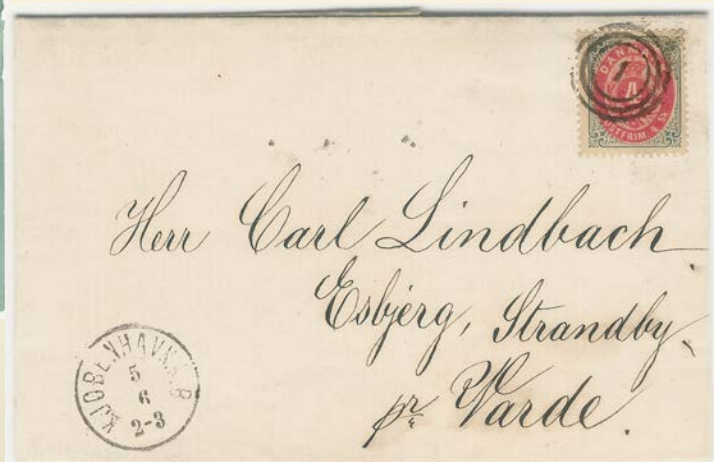 DANMARK
4
POSTFRIM. 4 SK.
1
Herr Carl Lindbach
Esbjerg, Strandby
pr Varde.
KJØBENHAVN
5
6
2-3